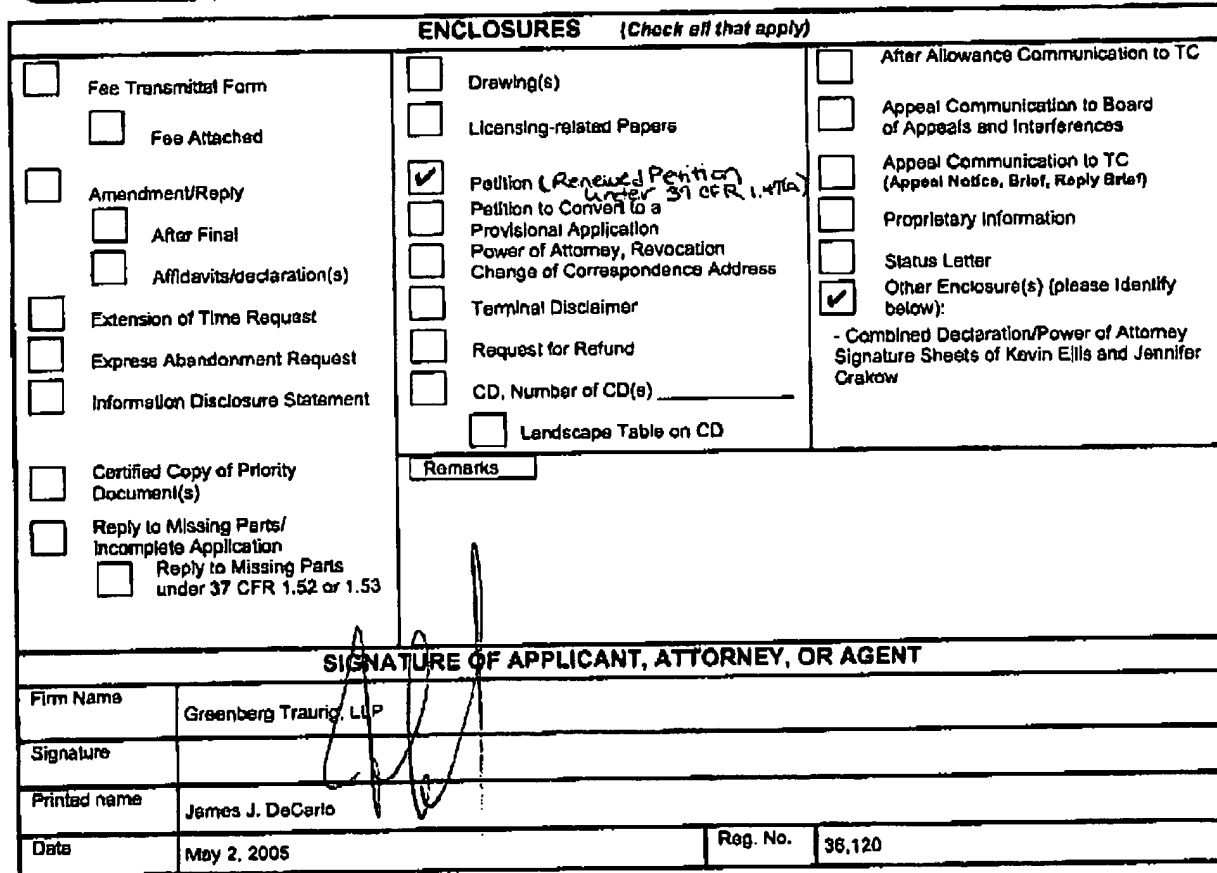 ENCLOSURES (Check all that apply)
Fee Transmittal Form
Fee Attached
Amendment/Reply
After Final
Affidavits/declaration(s)
Extension of Time Request
Express Abandonment Request
Information Disclosure Statement
Certified Copy of Priority
Document(s)
Reply to Missing Parts/
Incomplete Application
Reply to Missing Parts
under 37 CFR 1.52 or 1.53
Drawing(s)
Licensing-related Papers
Petition (Renewed Petition
under 37 CFR 1.47(a))
Petition to Convert to a
Provisional Application
Power of Attorney, Revocation
Change of Correspondence Address
Terminal Disclaimer
Request for Refund
CD, Number of CD(s)
Landscape Table on CD
After Allowance Communication to TC
Appeal Communication to Board
of Appeals and Interferences
Appeal Communication to TC
(Appeal Notice, Brief, Reply Brief)
Proprietary Information
Status Letter
Other Enclosure(s) (please Identify
below):
- Combined Declaration/Power of Attorney
Signature Sheets of Kevin Ells and Jennifer
Crakow
Remarks
SIGNATURE OF APPLICANT, ATTORNEY, OR AGENT
Firm Name
Greenberg Traurig, LLP
Signature
Printed name
James J. DeCarlo
Date
May 2, 2005
Reg. No.
36,120